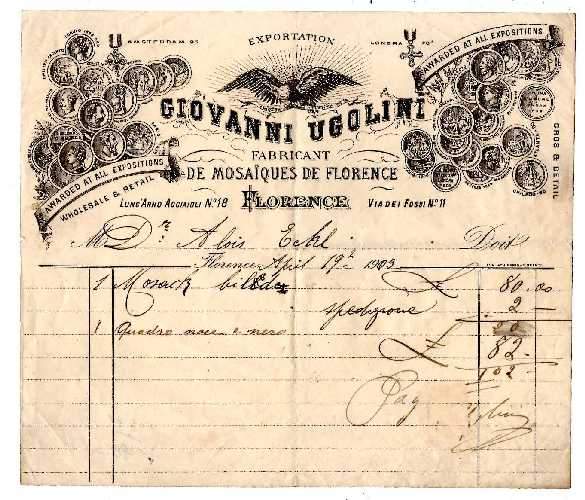 AMSTERDAM 95
EXPORTATION
LONDRA
AWARDED AT ALL EXPOSITIONS
GIOVANNI UGOLINI
FABRICANT
DE MOSAÏQUES DE FLORENCE
AWARDED AT ALL EXPOSITIONS
WHOLESALE & RETAIL
GROS & DETAIL
LUNG'ARNO ACCIAIOLI N.º 18
FLORENCE
VIA DEI FOSSI N.º 11
M Dr Alois Doit
Florence April 19 1903
1 Mosaik £ 80.00
spedizione 2 —
1 Quadro nero 20
£ 82.
102 —
Pag